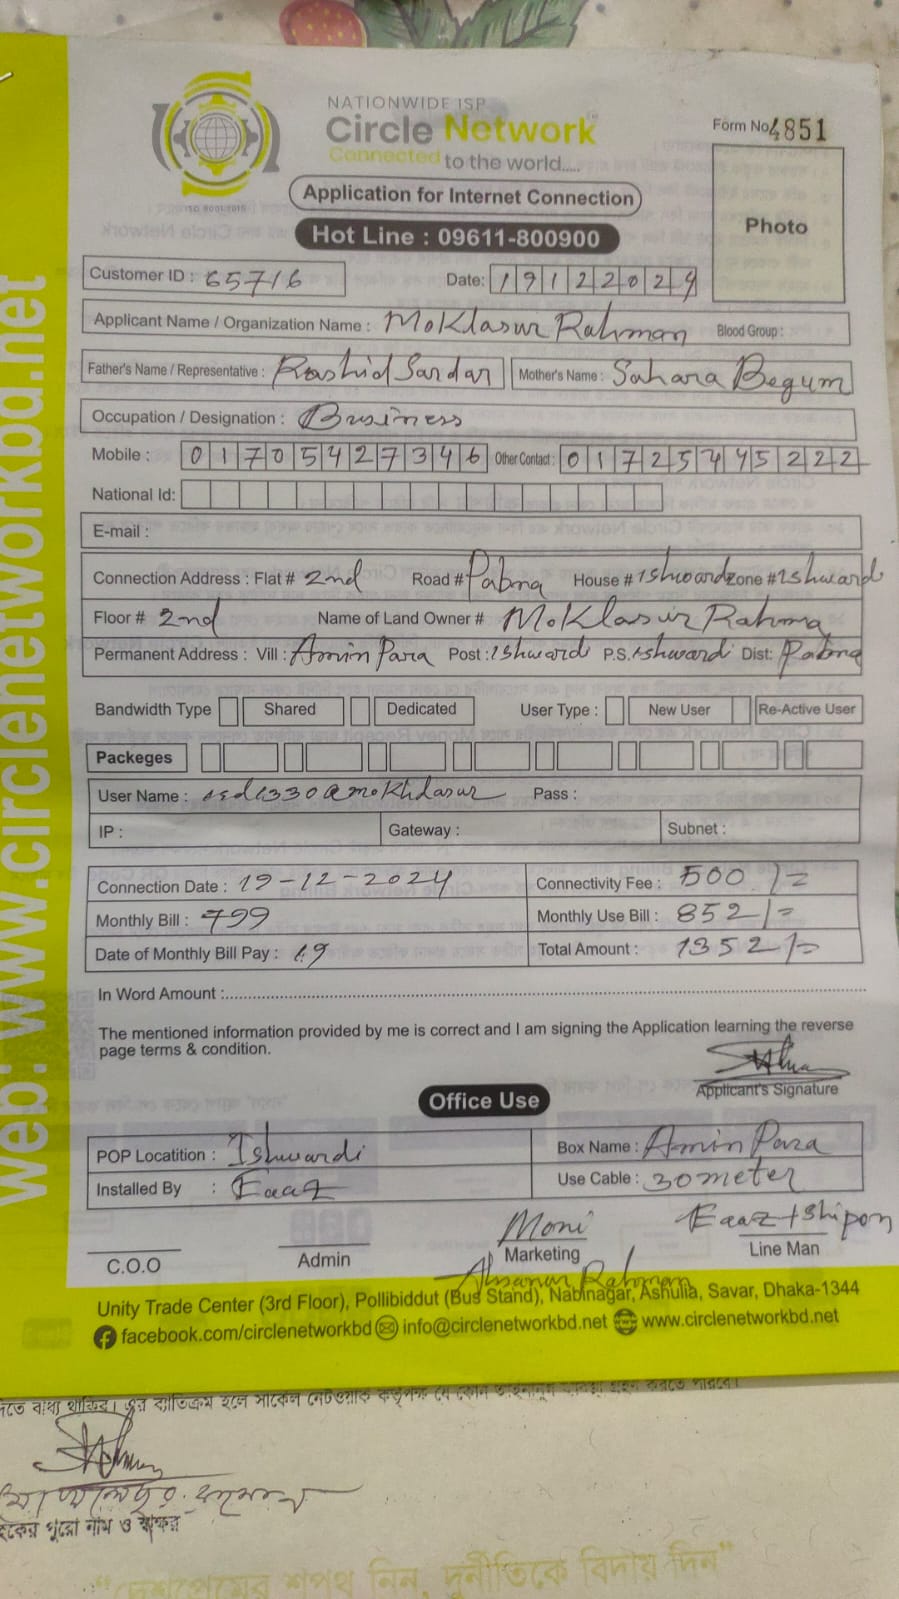 NATIONWIDE ISP
Circle Network
Connected to the world.....
ISO 9001:2015
Form No 4851
Application for Internet Connection
Hot Line : 09611-800900
Photo
Customer ID : 65716
Date: 19122024
Applicant Name / Organization Name : MoKlasur Rahman Blood Group :
Father's Name / Representative : Rashid Sardar Mother's Name : Sahara Begum
Occupation / Designation : Business
Mobile : 01705427346 Other Contact : 01725445222
National Id:
E-mail :
Connection Address : Flat # 2nd Road # Pabna House # Ishward Zone # Ishward
Floor # 2nd Name of Land Owner # MoKlasur Rahma
Permanent Address : Vill : Amin Para Post : Ishwardi P.S. Ishwardi Dist: Pabna
Bandwidth Type Shared Dedicated User Type : New User Re-Active User
Packeges
User Name : Pass :
IP : Gateway : Subnet :
Connection Date : 19-12-2024 Connectivity Fee : 500 /=
Monthly Bill : 799 Monthly Use Bill : 852/=
Date of Monthly Bill Pay : 19 Total Amount : 1352/=
In Word Amount :
The mentioned information provided by me is correct and I am signing the Application learning the reverse
page terms & condition.
Applicant's Signature
Office Use
POP Locatition : Ishwardi Box Name : Amin Para
Installed By : Eaaz Use Cable : 30 meter
Moni Eaaz + Shipon
C.O.O Admin Marketing Line Man
Ahsanur Rahman
Unity Trade Center (3rd Floor), Pollibiddut (Bus Stand), Nabinagar, Ashulia, Savar, Dhaka-1344
facebook.com/circlenetworkbd info@circlenetworkbd.net www.circlenetworkbd.net
web: www.circlenetworkbd.net
বাধ্য থাকিব। এর ব্যতিক্রম হলে সার্কেল নেটওয়ার্ক কর্তৃপক্ষ যে কোন
পুরো নাম ও স্বাক্ষর
“দেশপ্রেমের শপথ নিন, দুর্নীতিকে বিদায় দিন”